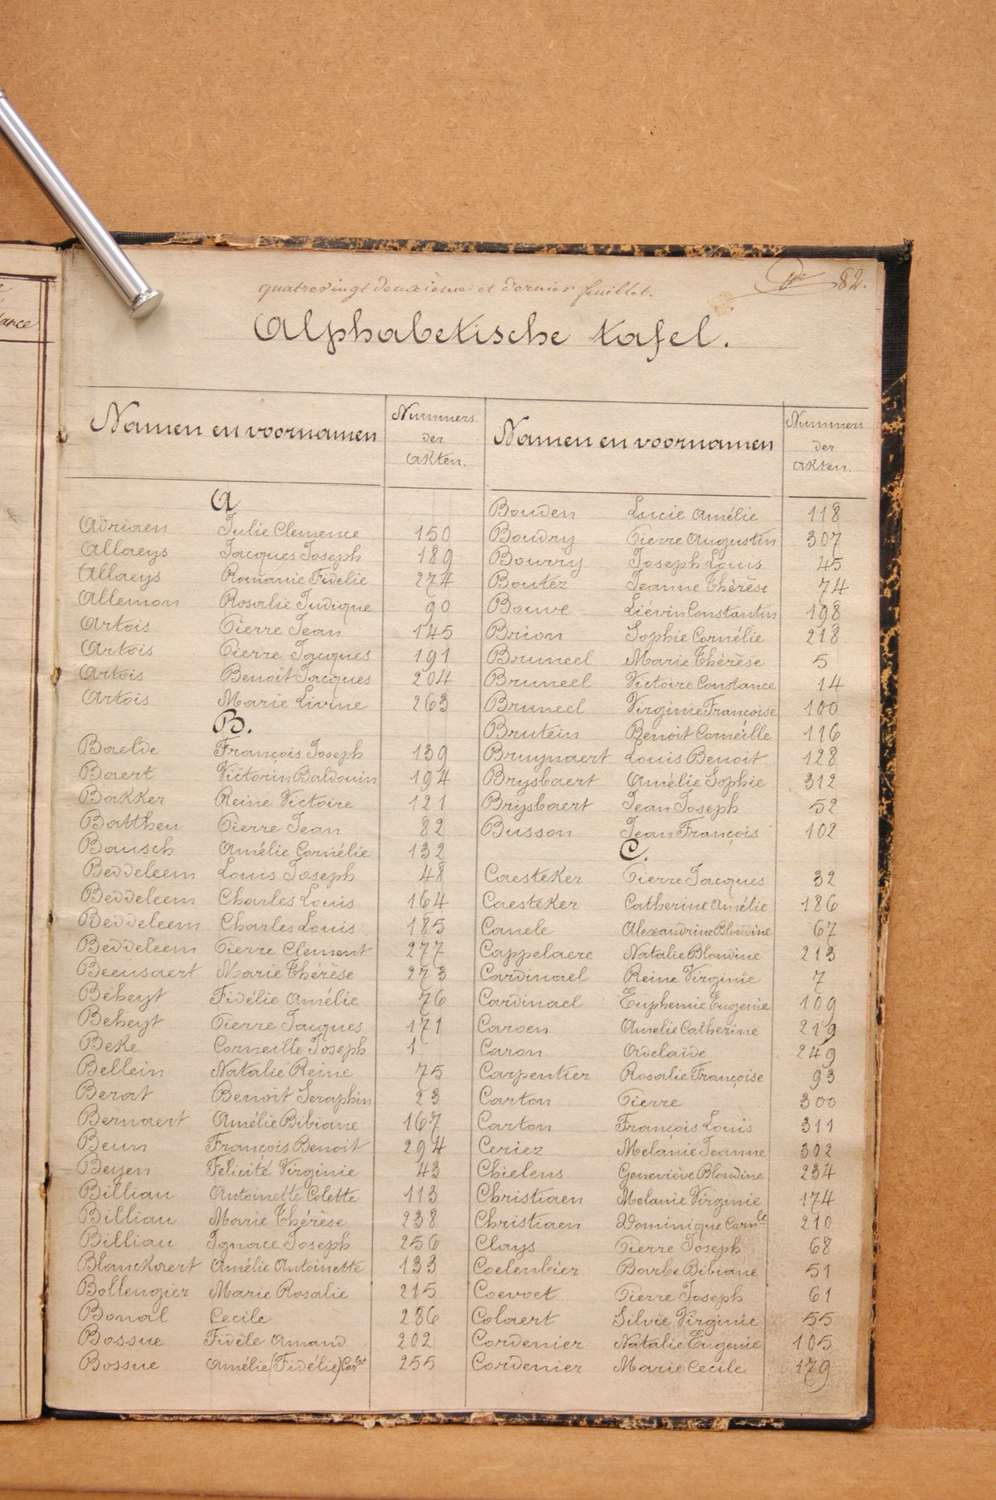 tance
82.
quatre vingt deuxième et dernier feuillet.
Alphabetische tafel.
Namen en voornamen
Nummers
der
akten.
A
Adriaen Julie Clemence 150
Allaeys Jacques Joseph 189
Allaeys Romanie Fidelie 274
Allemon Rosalie Judique 90
Artois Pierre Jean 145
Artois Pierre Jacques 191
Artois Benoit Jacques 204
Artois Marie Livine 263
B.
Baelde François Joseph 139
Baert Victorin Baldouin 194
Bakker Reine Victoire 121
Battheu Pierre Jean 82
Bausch Amélie Cornélie 132
Beddeleem Louis Joseph 48
Beddeleem Charles Louis 164
Beddeleem Charles Louis 185
Beddeleem Pierre Clement 277
Beensaert Marie Thérèse 273
Béheyt Fidélie Amélie 76
Beheyt Pierre Jacques 171
Beke Corneille Joseph 1
Bellein Natalie Reine 75
Berat Benoit Seraphin 23
Bernaert Amélie Bibiane 167
Beun François Benoit 294
Beyen Felicité Virginie 43
Billiau Antoinette Colette 113
Billiau Marie Thérèse 238
Billiau Ignace Joseph 256
Blanckaert Amélie Antoinette 133
Bollengier Marie Rosalie 215
Bonal Cecile 286
Bossue Fidèle Amand 202
Bossue Amélie (Fidélie) 255
Namen en voornamen
Nummers
der
akten.
Bouden Lucie Amélie 118
Boudry Pierre Augustin 307
Bourry Joseph Louis 45
Boutez Jeanne Thérèse 74
Bouve Liévin Constantin 198
Brion Sophie Cornélie 218
Bruneel Marie Thérèse 5
Bruneel Victoire Constance 14
Bruneel Virginie Françoise 100
Brutein Benoit Corneille 116
Bruynaert Louis Benoit 128
Brysbaert Amélie Sophie 312
Brysbaert Jean Joseph 52
Busson Jean François 102
C.
Caesteker Pierre Jacques 32
Caesteker Catherine Amélie 186
Canele Alexandrine Blondine 67
Cappelaere Natalie Blondine 213
Cardinael Reine Virginie 7
Cardinael Euphemie Eugenie 109
Caroen Amelie Catherine 219
Caron Adelaïde 249
Carpentier Rosalie Françoise 93
Carton Pierre 300
Carton François Louis 311
Ceriez Melanie Jeanne 302
Chielens Geneviève Blondine 234
Christiaen Melanie Virginie 174
Christiaen Dominique Corn.le 210
Clays Pierre Joseph 68
Coelenbier Barbe Bibiane 51
Coevoet Pierre Joseph 61
Colaert Silvie Virginie 55
Cordenier Natalie Eugenie 105
Cordenier Marie Cecile 179